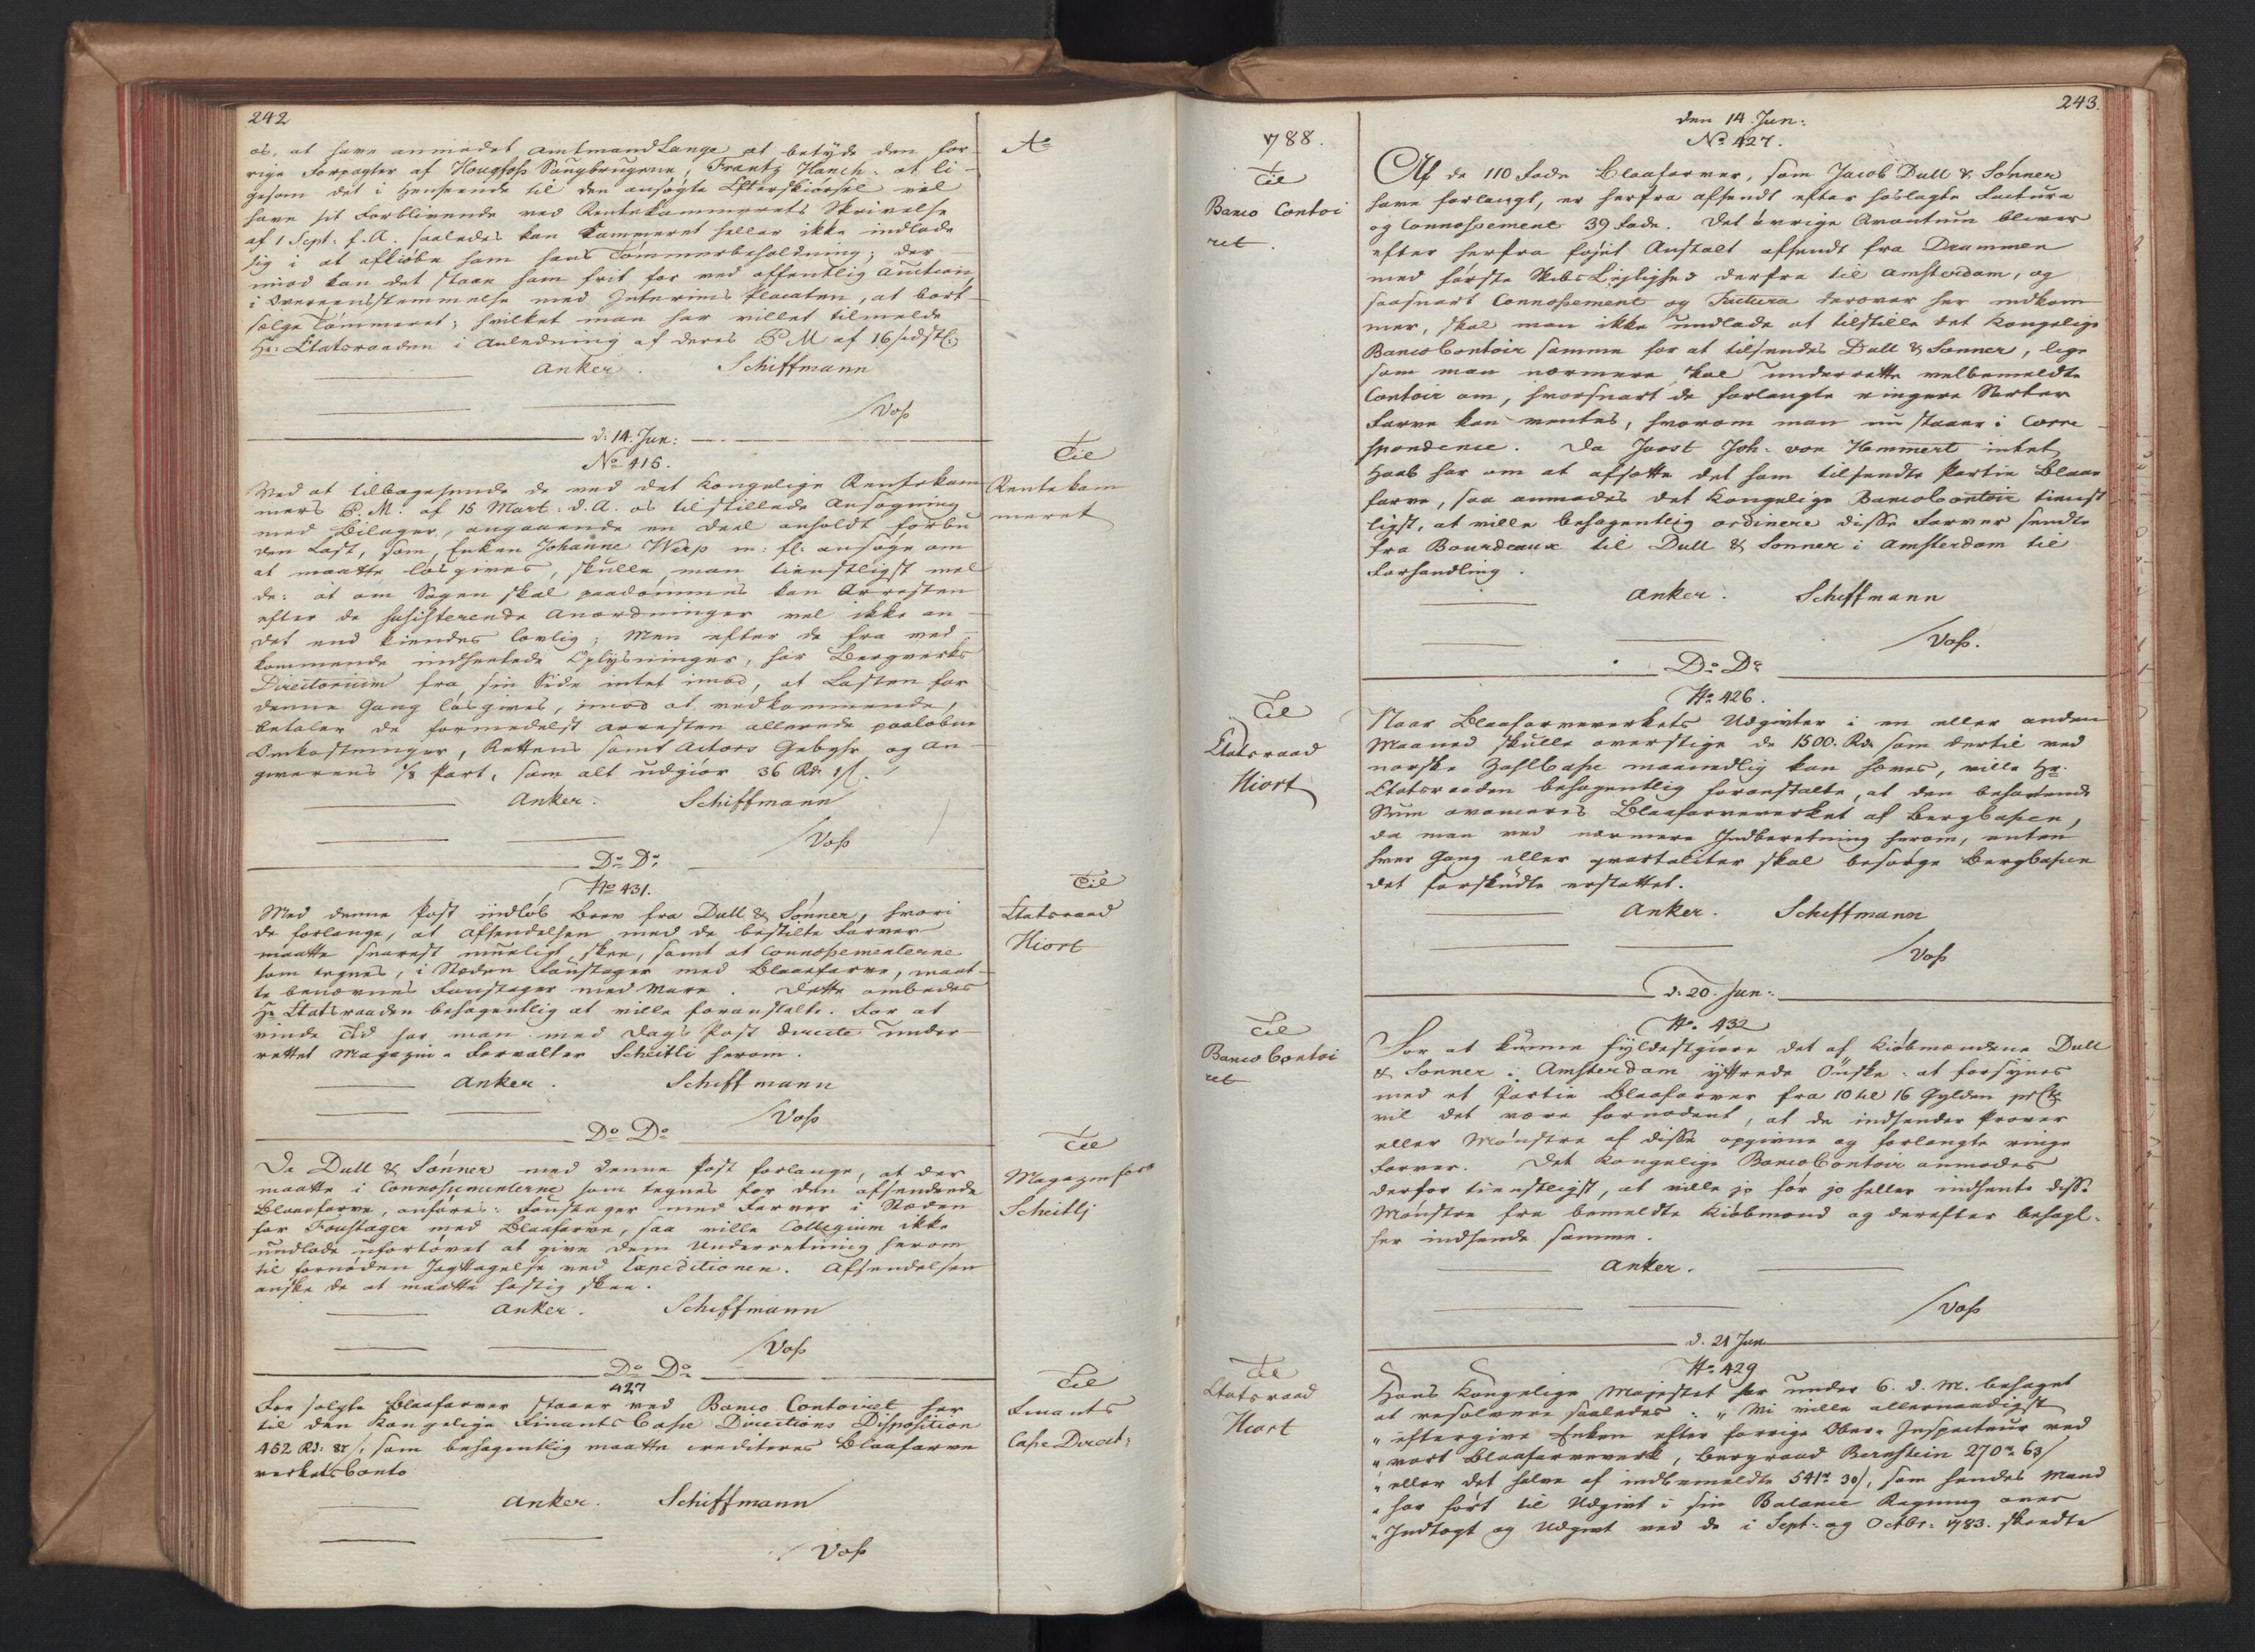 242
Ao
os, at have anmodet Amtmand Lange at betyde den for-
rige Forpagter af Hougfoss Saugbrugene, Frantz Hanch: at li-
gesom det i Henseende til den ansøgte Efterskiørsel vel
have sit Forblivende ved Rentekammerets Skrivelse
af 1 Sept: f. A. saaledes kan Kammeret heller ikke indlade
sig i at afkiøbe ham hans Tømmerbeholdning; der-
imod kan det staae ham frit for ved offentlig Auction
i Overeensstemmelse med Interims Placaten, at bort-
sælge Tømmeret; hvilket man har villet tilmelde
Hr: Etatsraaden i Anledning af deres P M af 16 sidstl:
Anker. Schiffmann
/Voss
d: 14. Jun:
No 415.
Til
Rentekam
meret
Ved at tilbagesende de ved det Kongelige Rentekam-
mers P. M. af 15 Mart: d. A. os tilstillede Ansøgning
med Bilager, angaaende en deel anholdt forbu
den Last, som Enken Johanne Weep m: fl: ansøge om
at maatte løsgives, skulle man tienstligst mel
de: at om Sagen skal paadømmes kan Arresten
efter de subsisterende Anordninger vel ikke an-
det end kiendes lovlig; Men efter de fra ved-
kommende indhentede Oplysninger, har Bergverks
Directorium fra sin Side intet imod, at Lasten for
denne Gang løsgives, imod at vedkommende,
betaler de formedelst Arresten allerede paaløbne
Omkostninger, Rettens samt Actors Gebyhr og An-
giverens 1/3 Part, som alt udgiør 36 Rdr 1 s.
Anker. Schiffmann
/Voss
Do Do
No 431.
Til
Etatsraad
Hiort
Med denne Post indløb Brev fra Dull & Sønner, hvori
de forlange, at Afsendelsen med de bestilte Farver
maatte snarest mueligt skee, samt at Connossementerne
som tegnes, i Stæden Foustager med Blaaefarve, maat-
te benævnes Foustager med Vare. Dette ombedes
Hr Etatsraaden behagentlig at ville foranstalte. For at
vinde Tid har man med Dags Post directe under-
rettet Magazin-Forvalter Scheitli herom.
Anker. Schiffmann
/Voss
Do Do
Til
Magazinforv
Scheitli
Da Dull & Sønner med denne Post forlange, at der
maatte i Connossementerne som tegnes for den afsendende
Blaaefarve, anføres: Foustager med Farver i Stæden
for Foustager med Blaafarve, saa ville Collegium ikke
undlade ufortøvet at give dem Underretning herom
til fornøden Iagttagelse ved Expeditionen. Afsendelsen
ønske de at maatte hastig skee.
Anker. Schiffmann
/Voss
Do Do
427
Til
Finants
Casse Direct:
For solgte Blaafarver staaer ved Banco Contoiret her
til den Kongelige Finants Casse Directions Disposition
452 Rd: 8 s, som behagentlig maatte crediteres Blaafarve
verkets Conto
Anker. Schiffmann
/Voss
243.
1788.
den 14. Jun:
No 427.
Til
Banco Contoi
ret.
Af de 110 Fade Blaafarver, som Jacob Dull & Sønner
have forlangt, er herfra afsendt efter hoslagte Factura
og Connossement 39 Fade. Det øvrige Qvantum bliver
efter herfra føjet Anstalt afsendt fra Drammen
med første Skibs Lejlighed derfra til Amsterdam, og
saasnart Connossement og Factura derover her indkom-
mer, skal man ikke undlade at tilstille det Kongelige
Banco Contoir samme for at tilsendes Dull & Sønner, lige
som man nærmere skal underrette velbemeldte
Contoir om, hvorsnart de forlangte ringere Sorter
Farve kan ventes, hvorom man nu staaer i Corre-
spondence. Da Joost Joh: von Hemmert intet
Haab har om at afsætte det ham tilsendte Partie Blaae
farve, saa anmodes det Kongelige Banco Contoir tienst
ligst, at ville behagentlig ordinere disse Farver sendte
fra Bourdeaux til Dull & Sønner i Amsterdam til
Forhandling.
Anker. Schiffmann
/Voss.
Do Do
No 426.
Til
Etatsraad
Hiort
Naar Blaafarveverkets Udgivter i en eller anden
Maaned skulle overstige de 1500. Rdr som dertil ved
norske Zahlcasse maanedlig kan hæves, ville Hr.
Etatsraaden behagentlig foranstalte, at den behøvende
Sum avanceres Blaafarveverket af Bergcassen,
da man ved nærmere Indberetning herom, enten
hver Gang eller qvartaliter skal besørge Bergcassen
det forskudte erstattet.
Anker. Schiffmann
/Voss
d: 20. Jun:
No. 432
Til
Banco Contoi
ret
For at kunne fyldestgiøre det af Kiøbmændene Dull
& Sønner i Amsterdam yttrede Ønske: at forsynes
med et Partie Blaafarver fra 10 til 16 Gylden pr Ctr
vil det være fornødent, at de indsender Prøver
eller Mønstre af disse opgivne og forlangte ringe
Farver. Det Kongelige Banco Contoir anmodes
derfor tienstligst, at ville jo før jo heller indhente disse
Mønstre fra bemeldte Kiøbmænd og derefter behagl:
her indsende samme.
Anker.
/Voss
d. 21 Jun
No 429
Til
Etatsraad
Hiort
Hans Kongelige Majestet har under 6. d. M. behaget
at resolvere saaledes: "Vi ville allernaadigst
" eftergive Enken efter forrige Ober-Inspecteur ved
" vort Blaafarveverk, Bergraad Bernstein 270 rd 63 s
" eller det halve af indbemeldte 541 rd 30 s, som hendes Mand
" har ført til Udgivt i sin Balance Regning over
" Indtægt og Udgivt ved de i Sept: og Octbr: 1783. skeedte